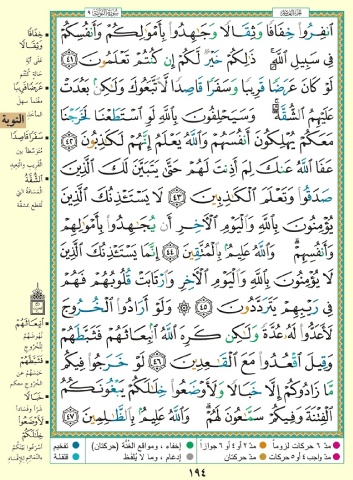 سُورَةُ التَّوۡبَةِ ٩
الجزء العاشر
ٱنفِرُواْ خِفَافٗا وَثِقَالٗا وَجَٰهِدُواْ بِأَمۡوَٰلِكُمۡ وَأَنفُسِكُمۡ
فِي سَبِيلِ ٱللَّهِۚ ذَٰلِكُمۡ خَيۡرٞ لَّكُمۡ إِن كُنتُمۡ تَعۡلَمُونَ ٤١
لَوۡ كَانَ عَرَضٗا قَرِيبٗا وَسَفَرٗا قَاصِدٗا لَّٱتَّبَعُوكَ وَلَٰكِنۢ بَعُدَتۡ
عَلَيۡهِمُ ٱلشُّقَّةُۚ وَسَيَحۡلِفُونَ بِٱللَّهِ لَوِ ٱسۡتَطَعۡنَا لَخَرَجۡنَا
مَعَكُمۡ يُهۡلِكُونَ أَنفُسَهُمۡ وَٱللَّهُ يَعۡلَمُ إِنَّهُمۡ لَكَٰذِبُونَ ٤٢
عَفَا ٱللَّهُ عَنكَ لِمَ أَذِنتَ لَهُمۡ حَتَّىٰ يَتَبَيَّنَ لَكَ ٱلَّذِينَ
صَدَقُواْ وَتَعۡلَمَ ٱلۡكَٰذِبِينَ ٤٣ لَا يَسۡتَـٔۡذِنُكَ ٱلَّذِينَ
يُؤۡمِنُونَ بِٱللَّهِ وَٱلۡيَوۡمِ ٱلۡأٓخِرِ أَن يُجَٰهِدُواْ بِأَمۡوَٰلِهِمۡ
وَأَنفُسِهِمۡۗ وَٱللَّهُ عَلِيمُۢ بِٱلۡمُتَّقِينَ ٤٤ إِنَّمَا يَسۡتَـٔۡذِنُكَ ٱلَّذِينَ
لَا يُؤۡمِنُونَ بِٱللَّهِ وَٱلۡيَوۡمِ ٱلۡأٓخِرِ وَٱرۡتَابَتۡ قُلُوبُهُمۡ فَهُمۡ
فِي رَيۡبِهِمۡ يَتَرَدَّدُونَ ٤٥ ۞ وَلَوۡ أَرَادُواْ ٱلۡخُرُوجَ
لَأَعَدُّواْ لَهُۥ عُدَّةٗ وَلَٰكِن كَرِهَ ٱللَّهُ ٱنۢبِعَاثَهُمۡ فَثَبَّطَهُمۡ
وَقِيلَ ٱقۡعُدُواْ مَعَ ٱلۡقَٰعِدِينَ ٤٦ لَوۡ خَرَجُواْ فِيكُم
مَّا زَادُوكُمۡ إِلَّا خَبَالٗا وَلَأَوۡضَعُواْ خِلَٰلَكُمۡ يَبۡغُونَكُمُ
ٱلۡفِتۡنَةَ وَفِيكُمۡ سَمَّٰعُونَ لَهُمۡۗ وَٱللَّهُ عَلِيمُۢ بِٱلظَّٰلِمِينَ ٤٧
التوبة
خِفَافًا
وَثِقَالًا
على أيّة
حالة كنتم
عَرَضًا قَرِيبًا
مغنمًا سهل
المأخذ
سَفَرًا قَاصِدًا
متوسّطًا بين
القريب والبعيد
الشُّقَّةُ
المسافة التي
تُقطع بمشقّة
انبِعَاثَهُمْ
نهوضهم
للخروج
فَثَبَّطَهُمْ
حبسهم عن
الخروج معكم
خَبَالًا
شرًّا وفسادًا
لَأَوْضَعُوا
خِلَالَكُمْ
مدّ ٦ حركات لزوماً
مدّ ٢ أو ٤ أو ٦ جوازاً
إخفاء، ومواقع الغُنَّة (حركتان)
تفخيم
مدّ واجب ٤ أو ٥ حركات
مدّ حركتان
إدغام، وما لا يُلفظ
قلقلة
١٩٤